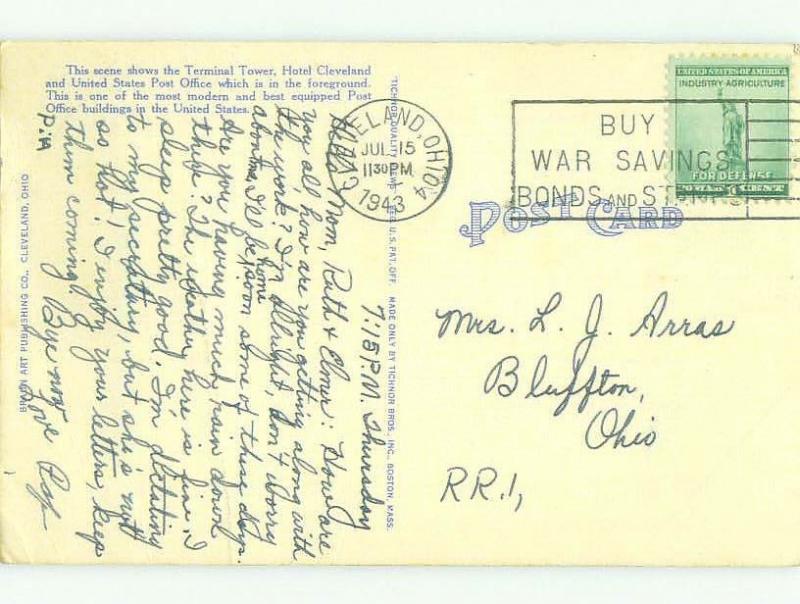 This scene shows the Terminal Tower, Hotel Cleveland
and United States Post Office which is in the foreground.
This is one of the most modern and best equipped Post
Office buildings in the United States.
7:15 P.M. Thursday
Hello Mom, Ruth & Elmer: How are
you all, how are you getting along with
the work? I'm allright, don't worry
about me, I'll be home soon some of these days.
Are you having much rain down
there? The weather here is fine. I
sleep pretty good. I'm dictating
to my secretary, but she's not
so hot! I enjoy your letters, keep
them coming! Bye now
Love Pop
P.H
BRAUN ART PUBLISHING CO., CLEVELAND, OHIO
TICHNOR QUALITY VIEWS REG. U.S. PAT. OFF. MADE ONLY BY TICHNOR BROS., INC., BOSTON, MASS.
CLEVELAND, OHIO 4
JUL 15
11 30 PM
1943
BUY
WAR SAVINGS
BONDS AND STAMPS
UNITED STATES OF AMERICA
INDUSTRY·AGRICULTURE
FOR DEFENSE
1 CENT
POST CARD
Mrs. L. J. Arras
Bluffton,
Ohio
R.R. 1,